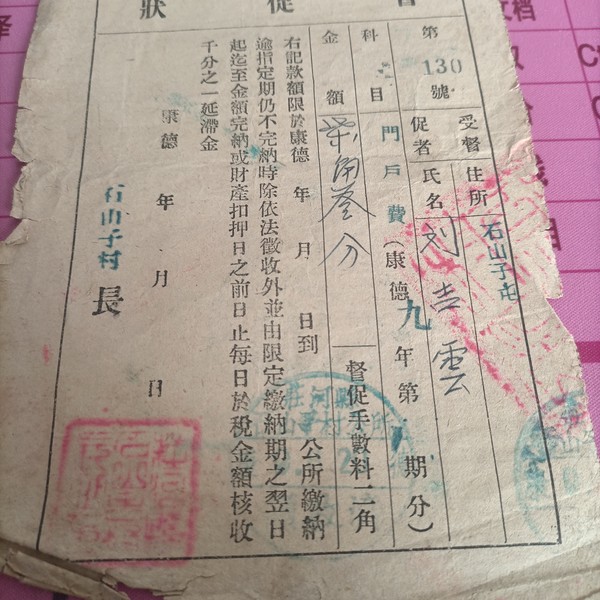 督促狀
第130號
受督促者
住所 石山子屯
氏名 刘吉雲
科目 門戶費(康德九年第 期分)
金額 柒角叄分 督促手數料二角
右記款額限於康德 年 月 日到 公所繳納
逾指定期仍不完納時除依法徵收外並由限定繳納期之翌日
起迄至金額完納或財產扣押日之前日止每日於稅金額核收
千分之一延滯金
康德 年 月 日
石山子村長
莊河縣